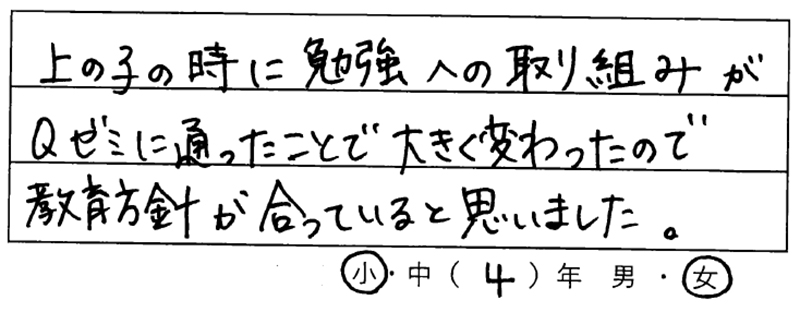 上の子の時に勉強への取り組みが
Qゼミに通ったことで大きく変わったので
教育方針が合っていると思いました。
小・中(4)年 男・女